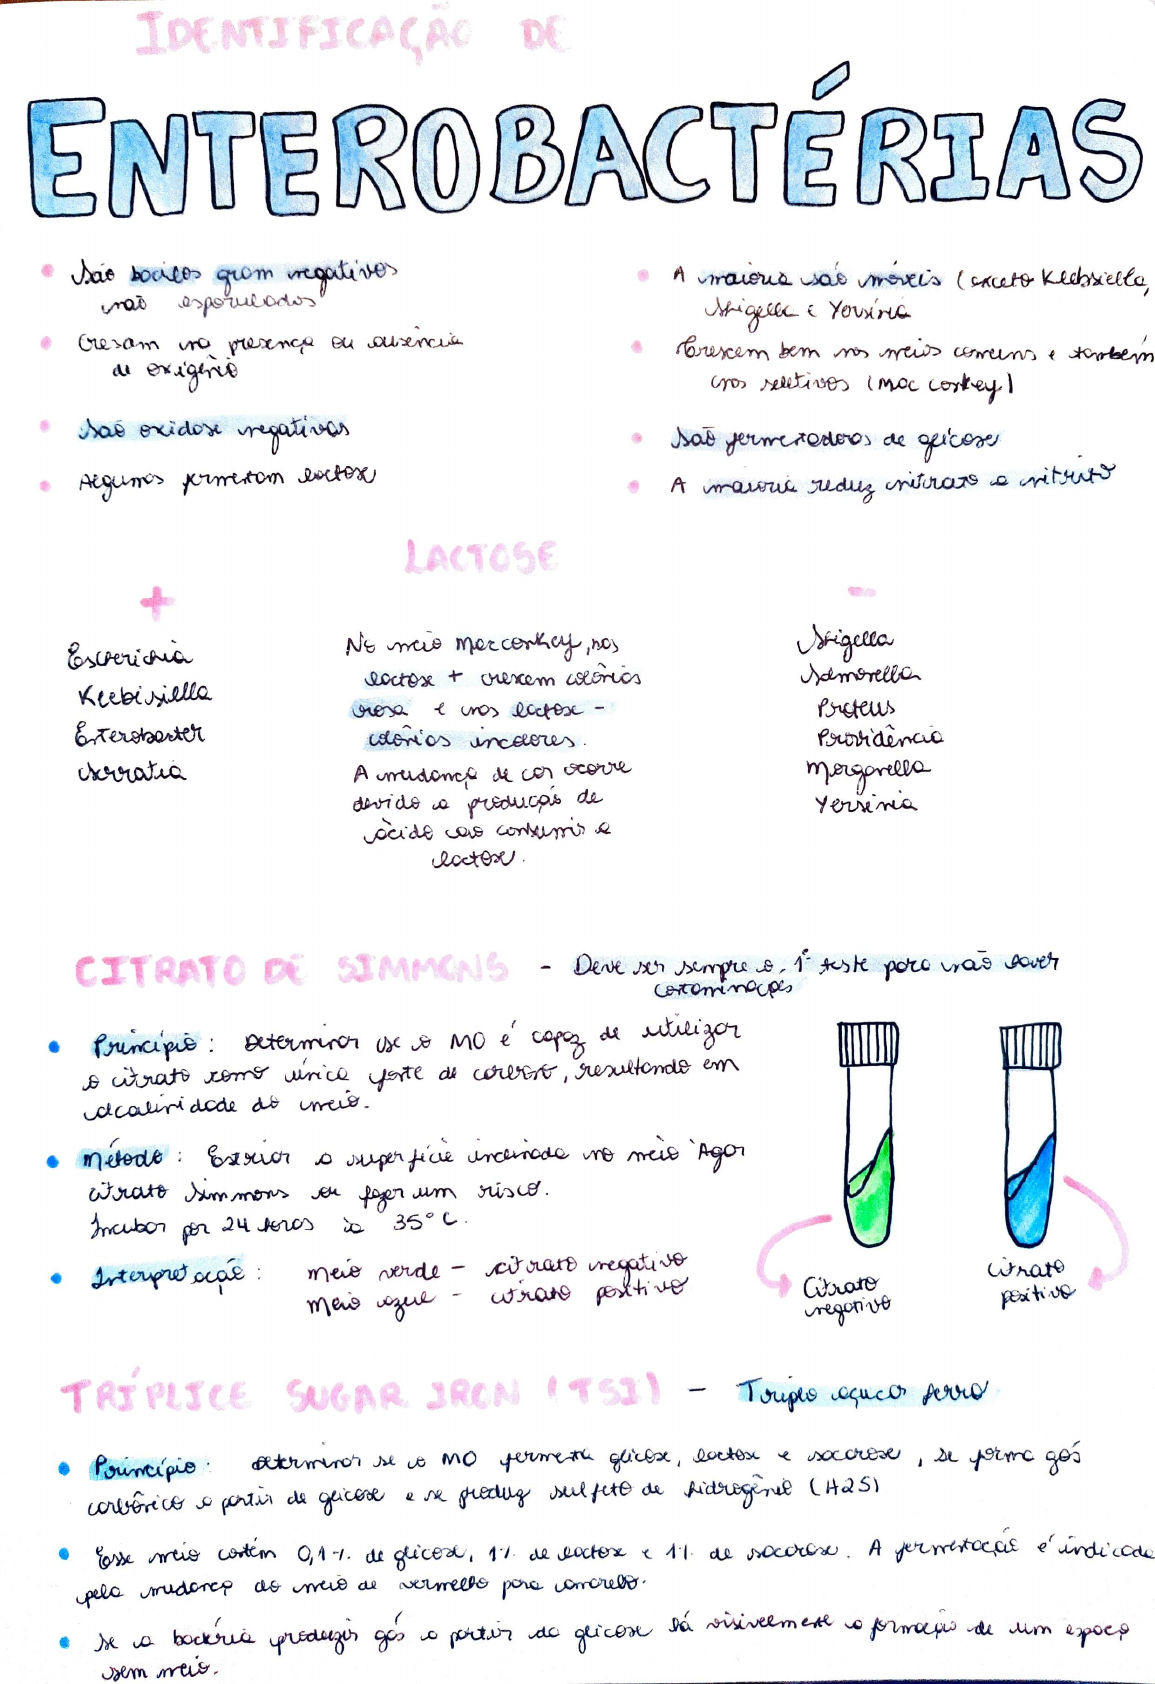 IDENTIFICAÇÃO DE
ENTEROBACTÉRIAS
São bacilos gram negativos
não esporulados
Cresam na presença ou ausência
de oxigênio
São oxidase negativas
Algumas fermentam lactose
A maioria são móveis (exceto Klebsiella,
Shigella e Yersinia
Crescem bem nos meios comuns e também
nos seletivos (Mac Conkey)
São fermentadoras de glicose
A maioria reduz nitrato a nitrito
LACTOSE
+
-
Escherichia
Klebisiella
Enterobacter
Serratia
No meio MacConkey, nas
lactose + crescem colônias
rosa e nas lactose -
colônias incolores.
A mudança de cor ocorre
devido a produção de
ácido ao consumir a
lactose.
Shigella
Salmonella
Proteus
Providência
Morganella
Yersinia
CITRATO DE SIMMONS - Deve ser sempre o 1º teste para não haver
contaminação
Princípio: Determinar se o MO é capaz de utilizar
o citrato como única fonte de carbono, resultando em
alcalinidade do meio.
Método: Estriar a superfície inclinada no meio Ágar
citrato Simmons ou fazer um risco.
Incubar por 24 horas à 35°C.
Interpretação: Meio verde - citrato negativo
Meio azul - citrato positivo
Citrato
negativo
citrato
positivo
TRÍPLICE SUGAR IRON (TSI) - Triplo açucar ferro
Princípio: determinar se o MO fermenta glicose, lactose e sacarose, se forma gás
carbônico a partir de glicose e se produz sulfeto de hidrogênio (H2S)
Esse meio contém 0,1% de glicose, 1% de lactose e 1% de sacarose. A fermentação é indicada
pela mudança do meio de vermelho para amarelo.
Se a bactéria produzir gás a partir da glicose há visivelmente a formação de um espaço
sem meio.